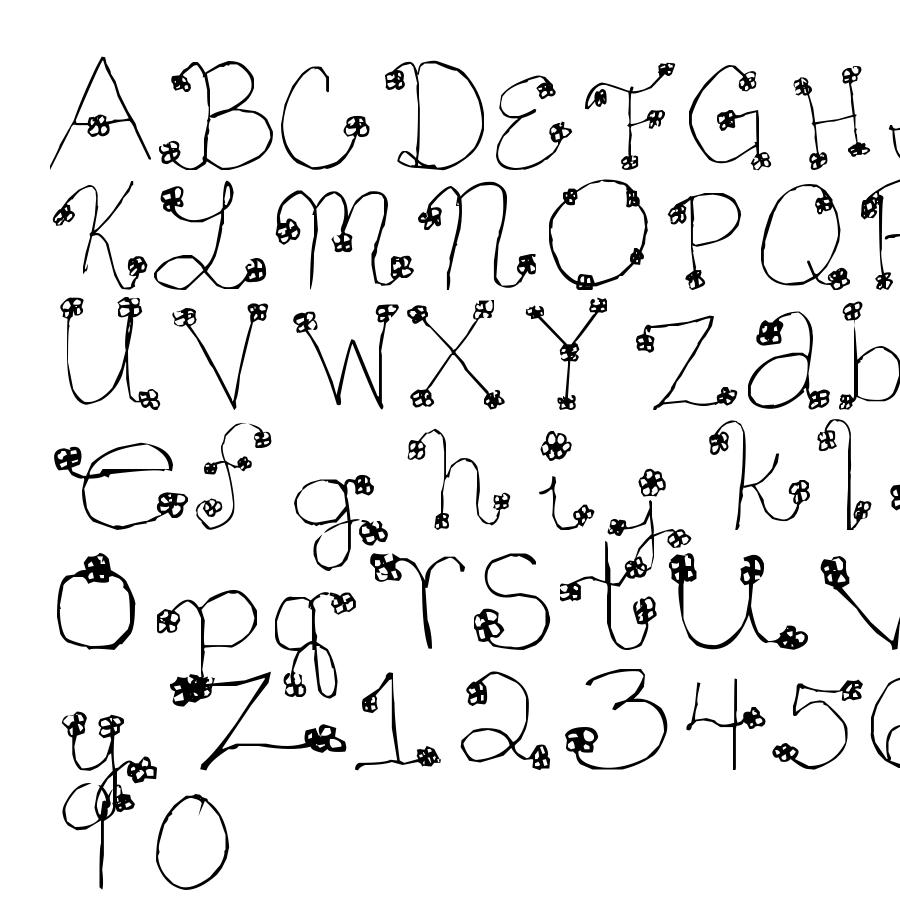 A B C D E F G H
K L M N O P Q R
U V W X Y Z a b
e f g h i j k l
o p q r s t u v
y z 1 2 3 4 5 6
9 0